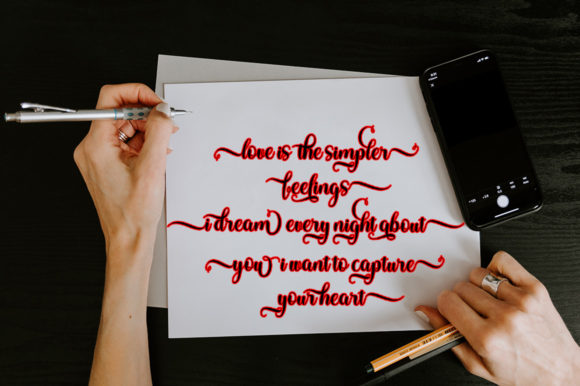 love is the simpler
feelings
i dream every night about
you i want to capture
your heart